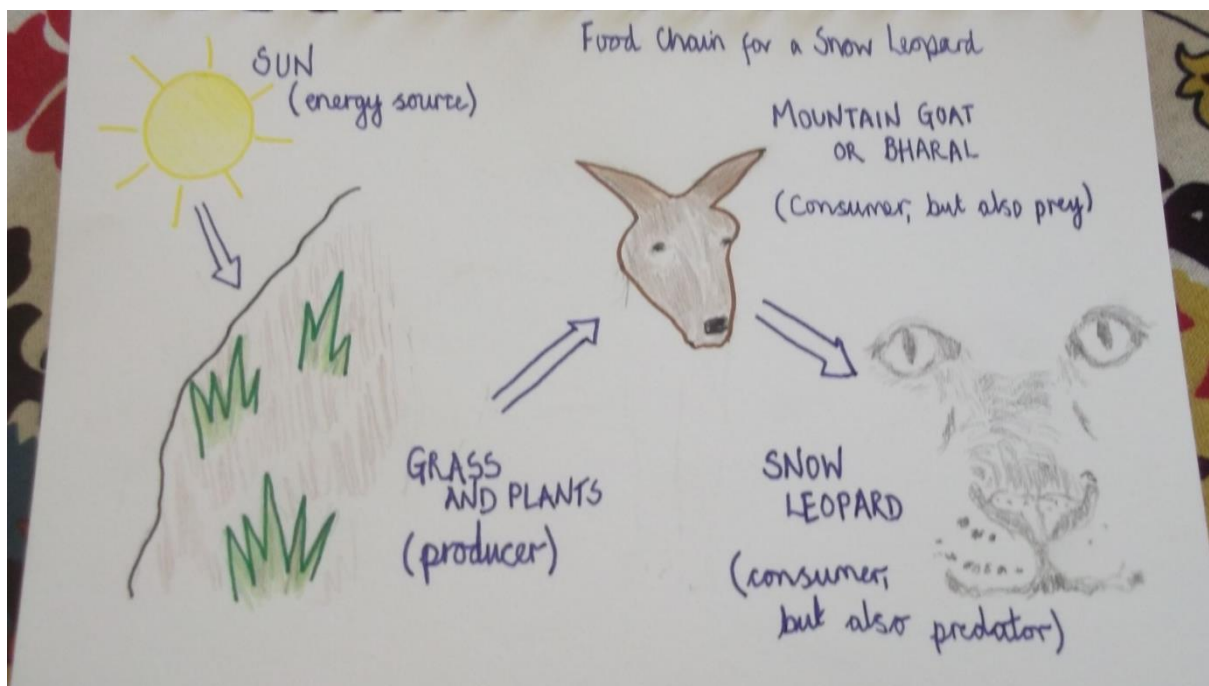 Food Chain for a Snow Leopard
SUN
(energy source)
MOUNTAIN GOAT
OR BHARAL
(Consumer, but also prey)
GRASS
AND PLANTS
(producer)
SNOW
LEOPARD
(consumer,
but also predator)